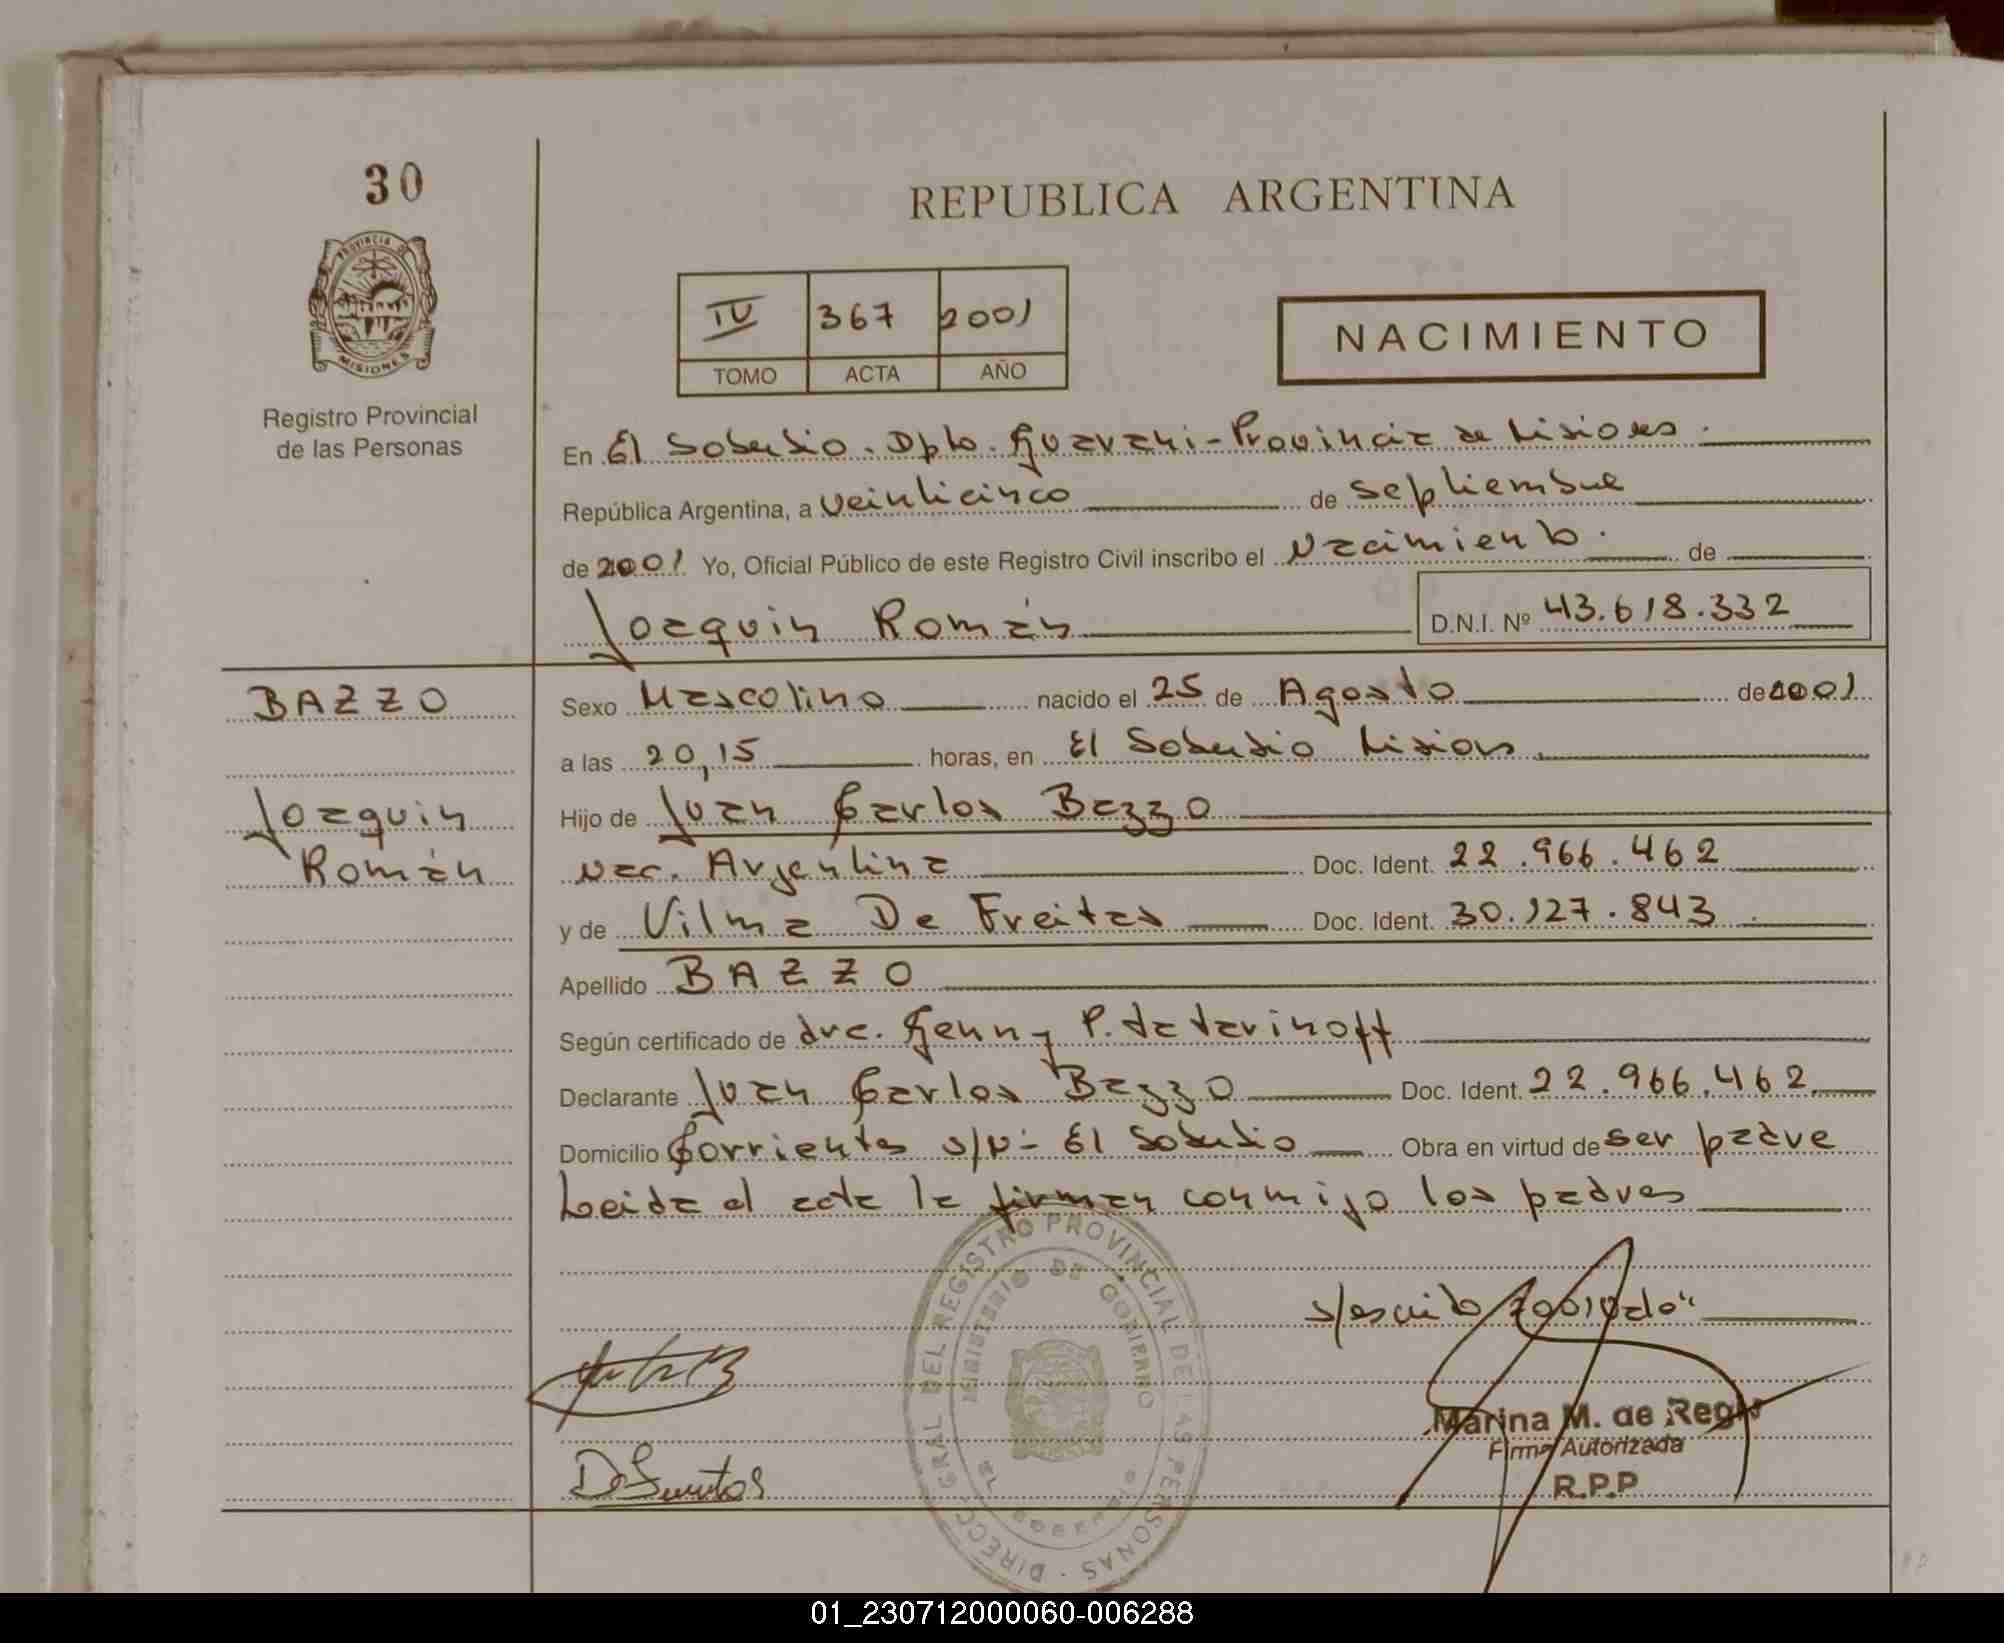 30
PROVINCIA DE
MISIONES
Registro Provincial
de las Personas
REPUBLICA ARGENTINA
IV 367 2001
TOMO ACTA AÑO
NACIMIENTO
En El Soberbio. Dpto. Guarani - Provincia de Misiones.
República Argentina, a veinticinco de septiembre
de 2001 Yo, Oficial Público de este Registro Civil inscribo el Nacimiento. de
Joaquin Román D.N.I. Nº 43.618.332
BAZZO
Joaquin
Román
Sexo Masculino nacido el 25 de Agosto de 2001
a las 20,15 horas, en El Soberbio Misiones
Hijo de Juan Carlos Bazzo
nac. Argentina Doc. Ident. 22.966.462
y de Vilma De Freitas Doc. Ident. 30.127.843
Apellido BAZZO
Según certificado de dra. Genny P. tatarinoff
Declarante Juan Carlos Bazzo Doc. Ident. 22.966.462
Domicilio Corrientes s/Nº El Soberbio Obra en virtud de ser padre
Leida el acta la firman conmigo los padres
s/escrito 2001
Marina M. de
Firma Autorizada
R.P.P
DIRECC. GRAL. DEL REGISTRO PROVINCIAL DE LAS PERSONAS
MINISTERIO DE GOBIERNO
EL SOBERBIO
01_230712000060-006288